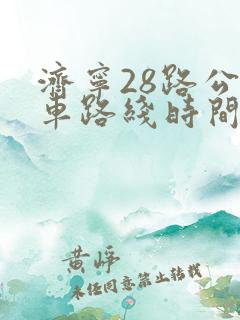 濟寧28路公
車路綫時間
黄崢
未经同意禁止转载